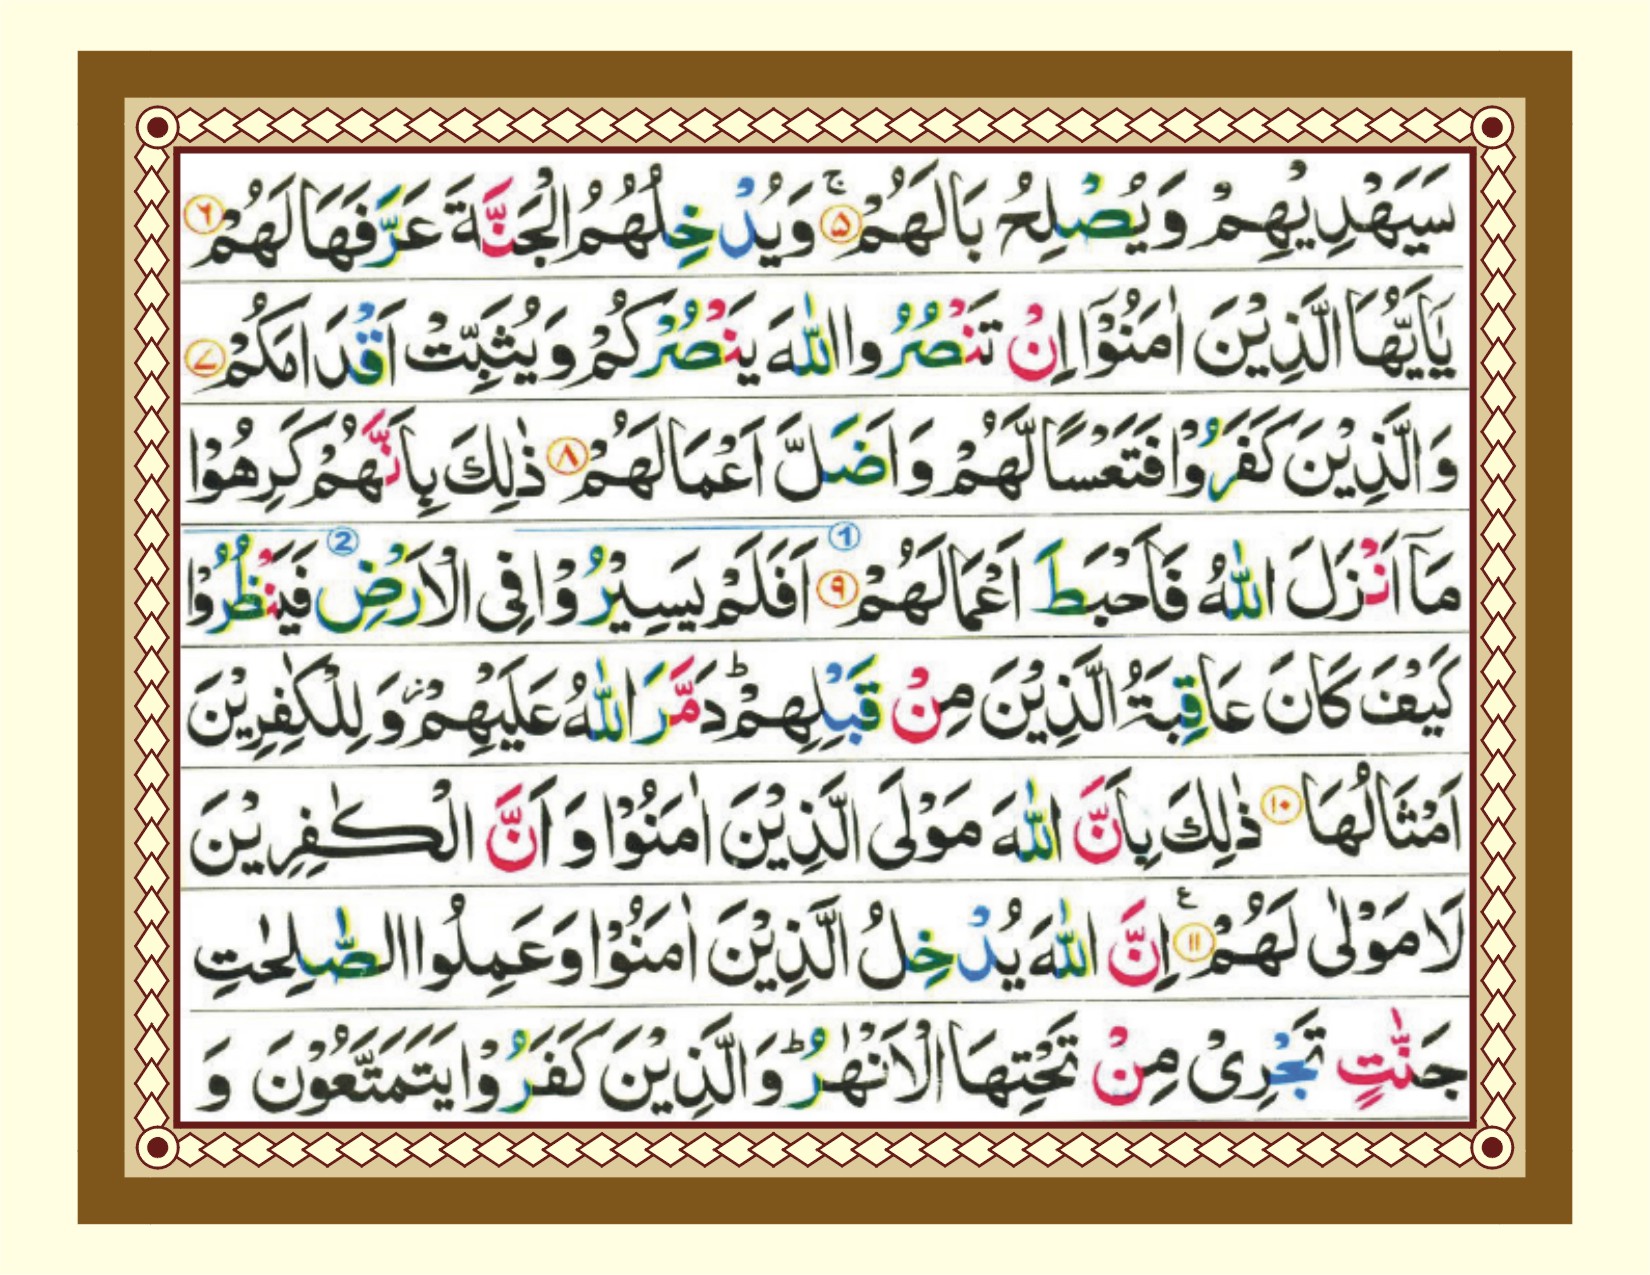 سَيَهْدِيْهِمْ وَيُصْلِحُ بَالَهُمْ ۚ ۵ وَيُدْخِلُهُمُ الْجَنَّةَ عَرَّفَهَا لَهُمْ ۶
يٰۤاَيُّهَا الَّذِيْنَ اٰمَنُوْۤا اِنْ تَنْصُرُوا اللّٰهَ يَنْصُرْكُمْ وَيُثَبِّتْ اَقْدَامَكُمْ ۷
وَالَّذِيْنَ كَفَرُوْا فَتَعْسًا لَّهُمْ وَاَضَلَّ اَعْمَالَهُمْ ۸ ذٰلِكَ بِاَنَّهُمْ كَرِهُوْا
مَاۤ اَنْزَلَ اللّٰهُ فَاَحْبَطَ اَعْمَالَهُمْ ۹ ① اَفَلَمْ يَسِيْرُوْا فِى الْاَرْضِ ② فَيَنْظُرُوْا
كَيْفَ كَانَ عَاقِبَةُ الَّذِيْنَ مِنْ قَبْلِهِمْ ؕ دَمَّرَ اللّٰهُ عَلَيْهِمْ ز وَلِلْكٰفِرِيْنَ
اَمْثَالُهَا ۱۰ ذٰلِكَ بِاَنَّ اللّٰهَ مَوْلَى الَّذِيْنَ اٰمَنُوْا وَاَنَّ الْكٰفِرِيْنَ
لَا مَوْلٰى لَهُمْ ع ۱۱ اِنَّ اللّٰهَ يُدْخِلُ الَّذِيْنَ اٰمَنُوْا وَعَمِلُوا الصّٰلِحٰتِ
جَنّٰتٍ تَجْرِىْ مِنْ تَحْتِهَا الْاَنْهٰرُ ؕ وَالَّذِيْنَ كَفَرُوْا يَتَمَتَّعُوْنَ وَ